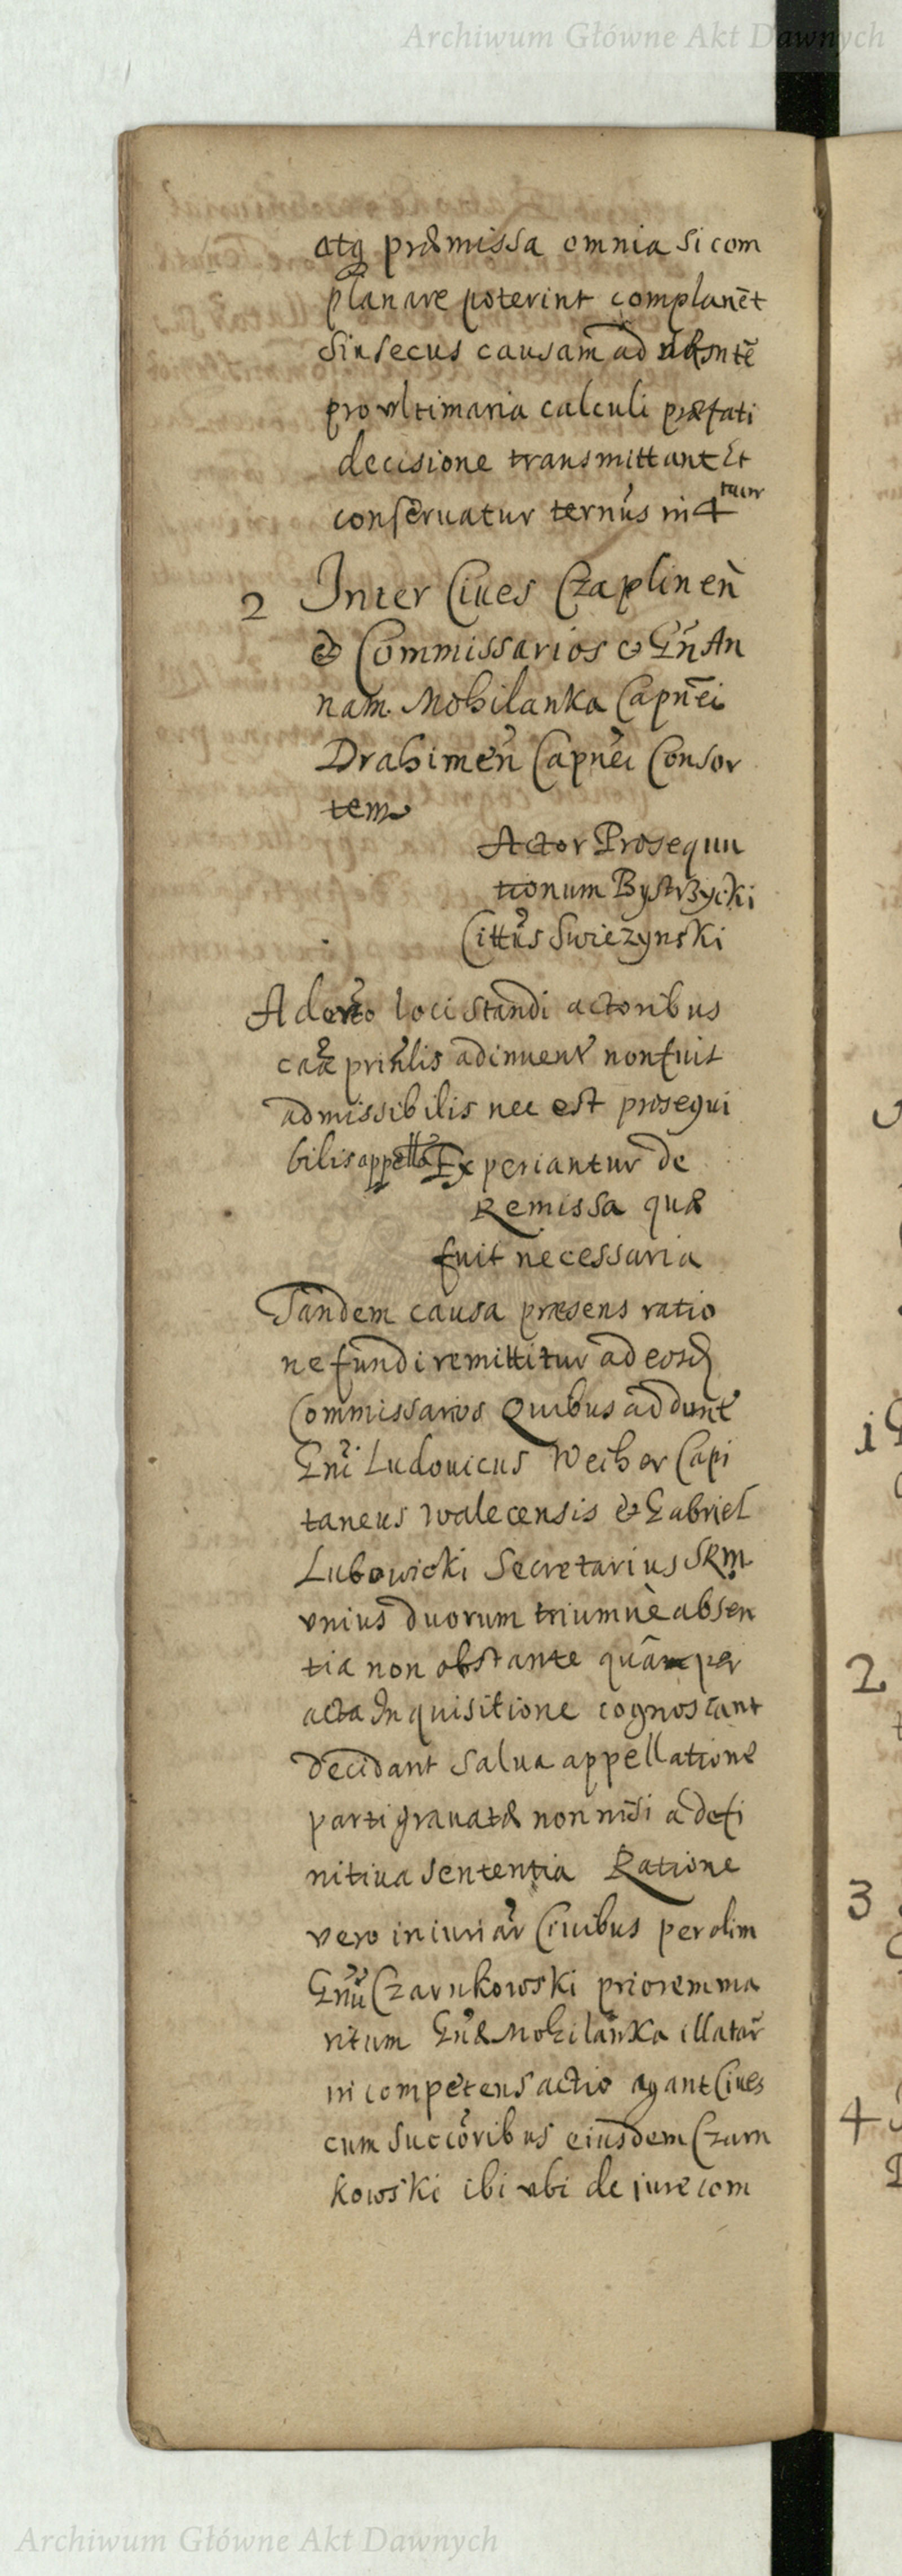 Archiwum Główne Akt Dawnych
atq præmissa omnia si com
planare poterint complanēt
Sin secus causam ad
pro vltimaria calculi præfati
decisione transmittant Et
conseruatur ternus in 4tum
2 Inter Ciues Czaplinen̄
& Commissarios & Gn̄ An
nam Mohilanka Capn̄ei
Drahimen̄ Capn̄ei Consor
tem
Actor Prosequu
tionum Bystrzycki
Cittus Swiezynski
Ad loci standi actoribus
caā prin̄lis adinuent̄ non fuit
admissibilis nec est prosequi
bilis appellā Experiantur de
Remissa quæ
fuit necessaria
Tandem causa præsens ratio
ne fundi remittitur ad eosd
Commissarios Quibus addunt̄
Gn̄i Ludouicus Weiher Capi
taneus Walecensis & Gabriel
Lubowicki Secretarius SRM
vnius duorum triumuè absen
tia non obstante quām per
acta Inquisitione cognoscant
decidant Salua appellatione
parti grauatæ non nisi a defi
nitiua sententia Ratione
vero iniuriar̄ Ciuibus per olim
Gn̄u Czarnkowski priorem ma
ritum Gn̄æ Mohilanka illatar̄
incompetens actio agant Ciues
cum succ̄oribus eiusdem Czarn
kowski ibi vbi de iure com
i
2
3
4
Archiwum Główne Akt Dawnych